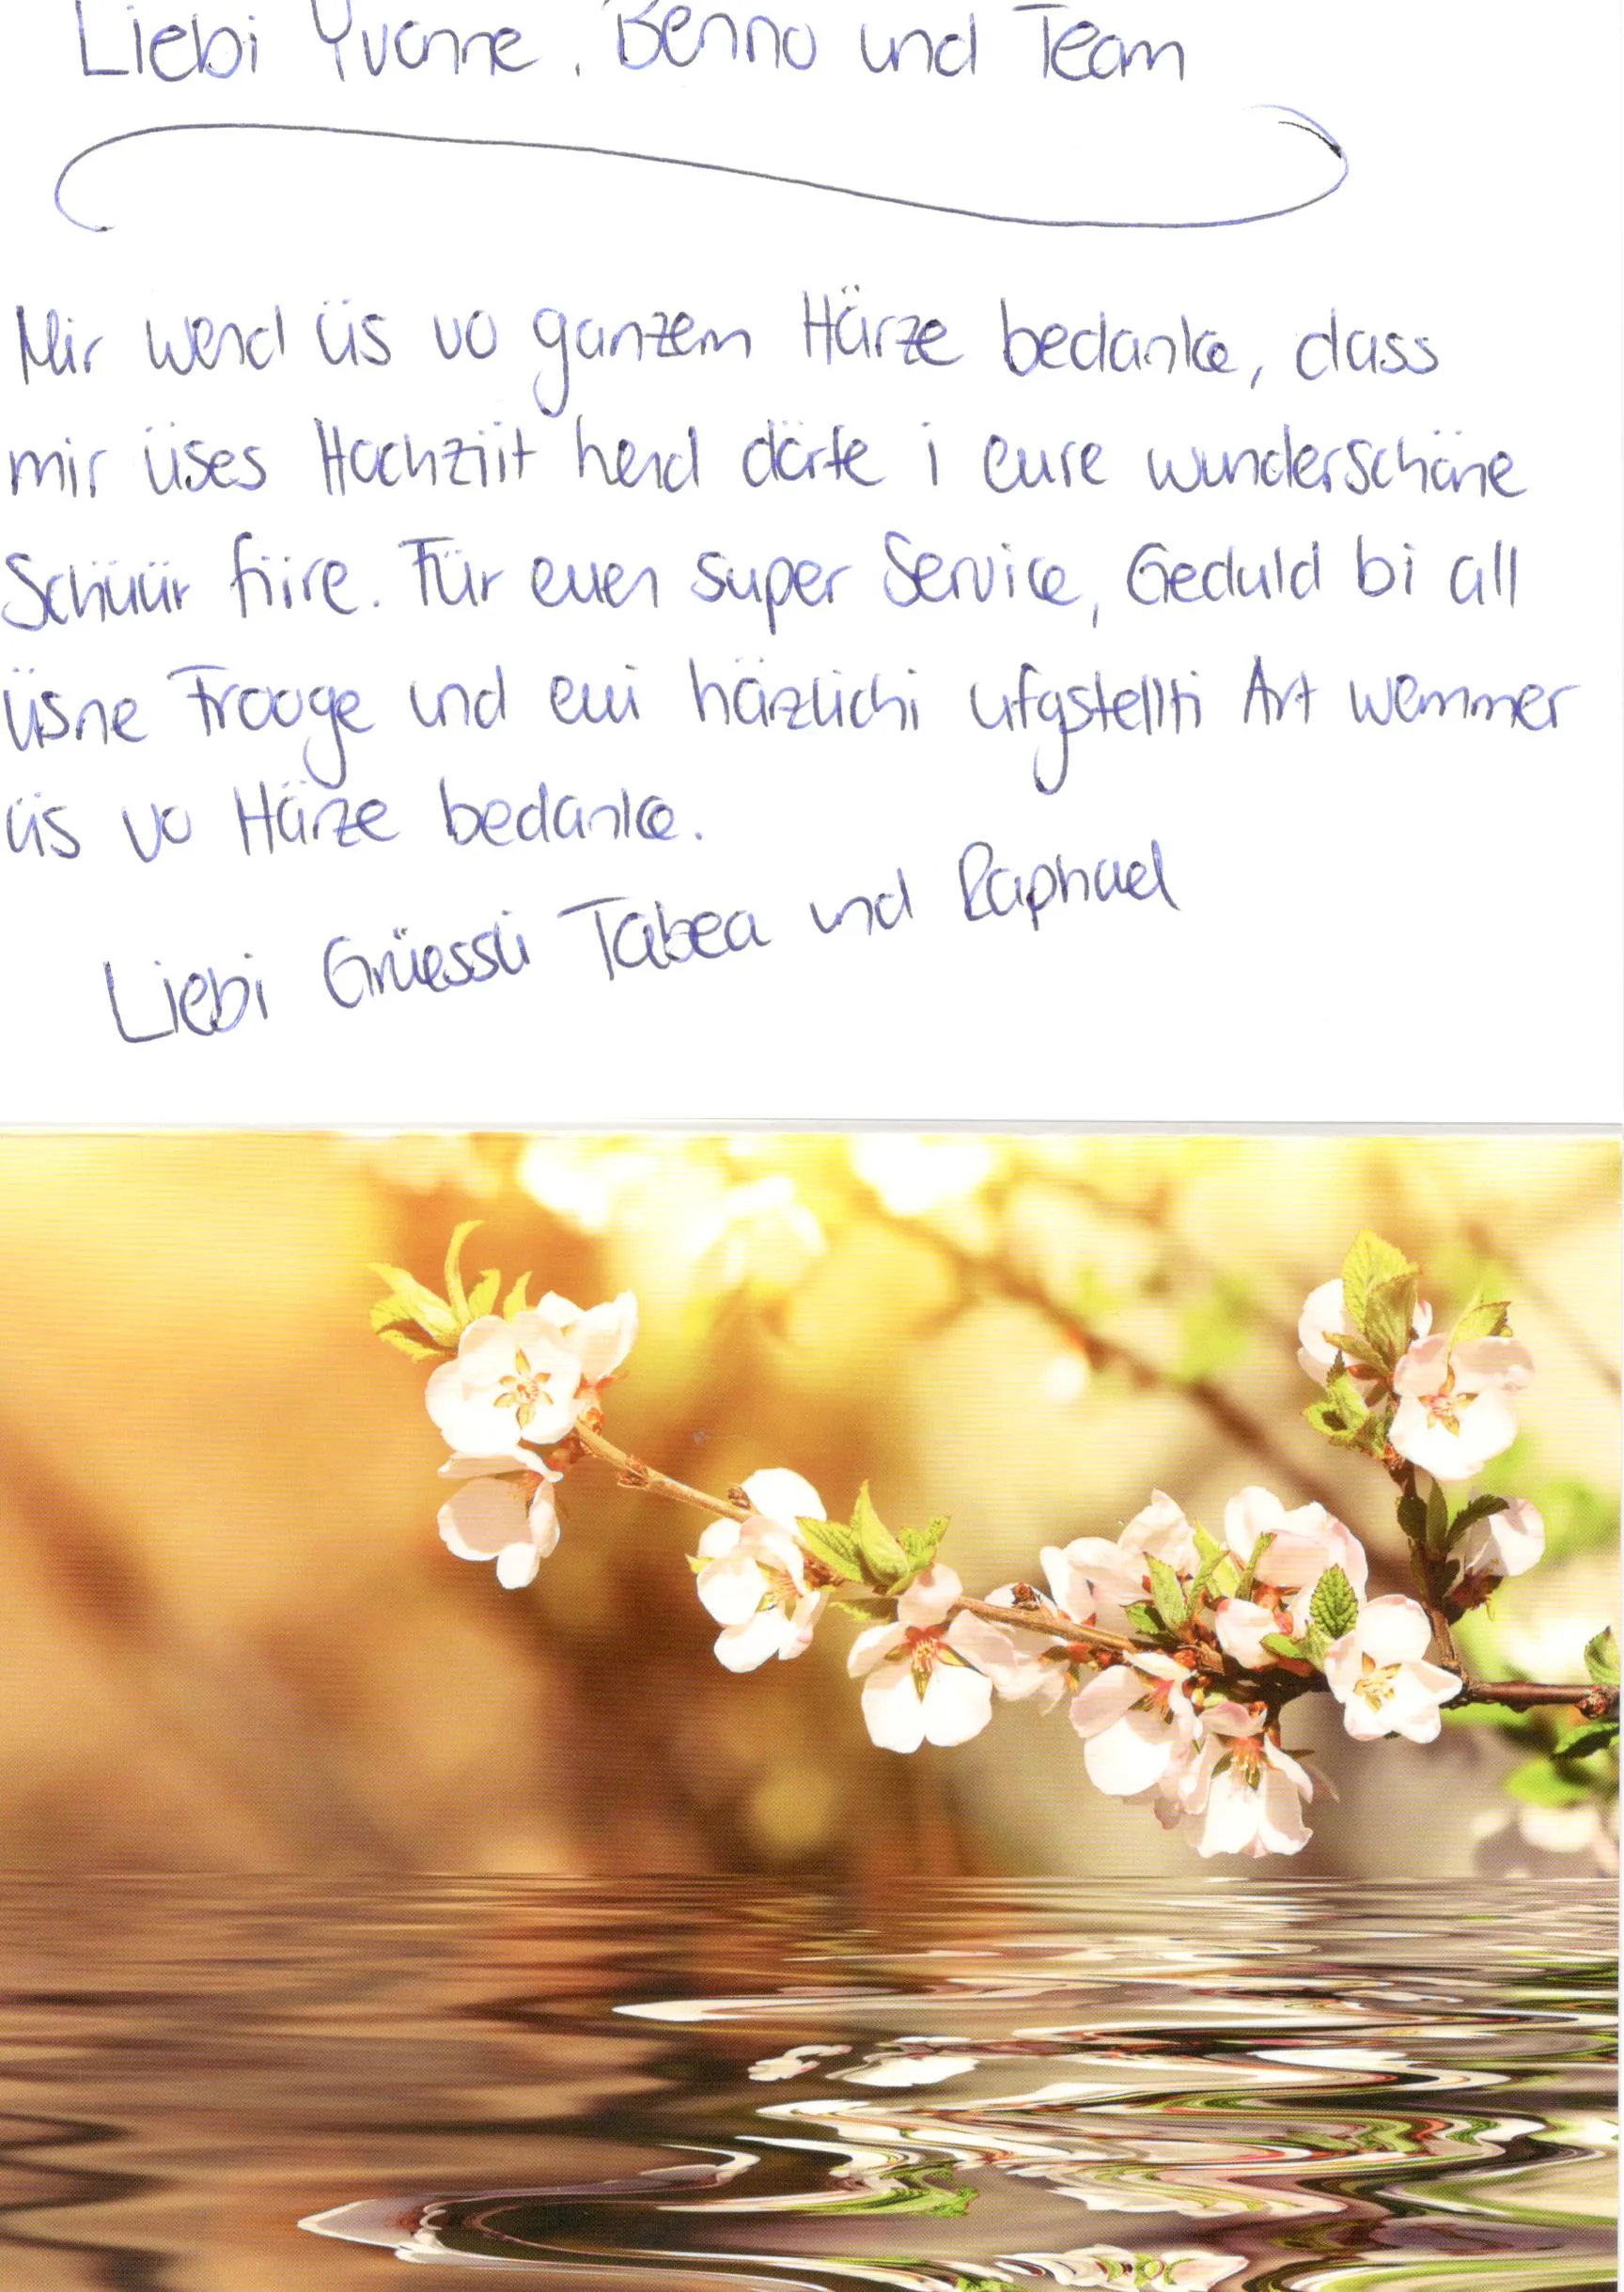 Liebi Yvonne, Benno und Team
Mir wend üs vo ganzem Härze bedanke, dass
mir üses Hochziit hend dörfe i eure wunderschöne
Schüür fiire. Für euen super Service, Geduld bi all
üsne Frooge und eui härzlichi ufgstellti Art wemmer
üs vo Härze bedanke.
Liebi Grüessli Tabea und Raphael